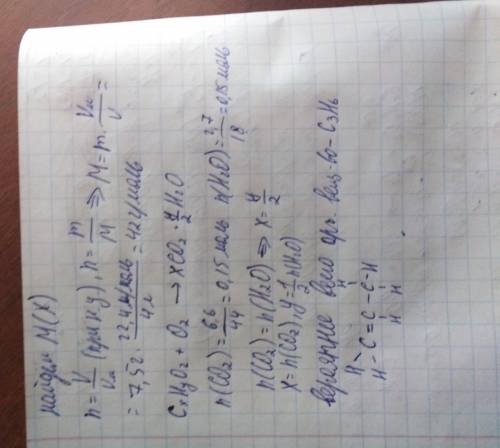 найдем M(X)
n = V/Vм (при н.у), n = m/M ⇒ M = m · Vм/V =
= 7,5г · 22,4л/моль / 4л = 42 г/моль
CxHyO2 + O2 → xCO2 · y/2 H2O
n(CO2) = 6,6/44 = 0,15 моль n(H2O) = 2,7/18 = 0,15 моль
n(CO2) = n(H2O) ⇒ x = y/2
x = n(CO2), y = 1/2 n(H2O)
вероятнее всего орг. вещ-во - C3H6
H H
H - C = C - C - H
H H